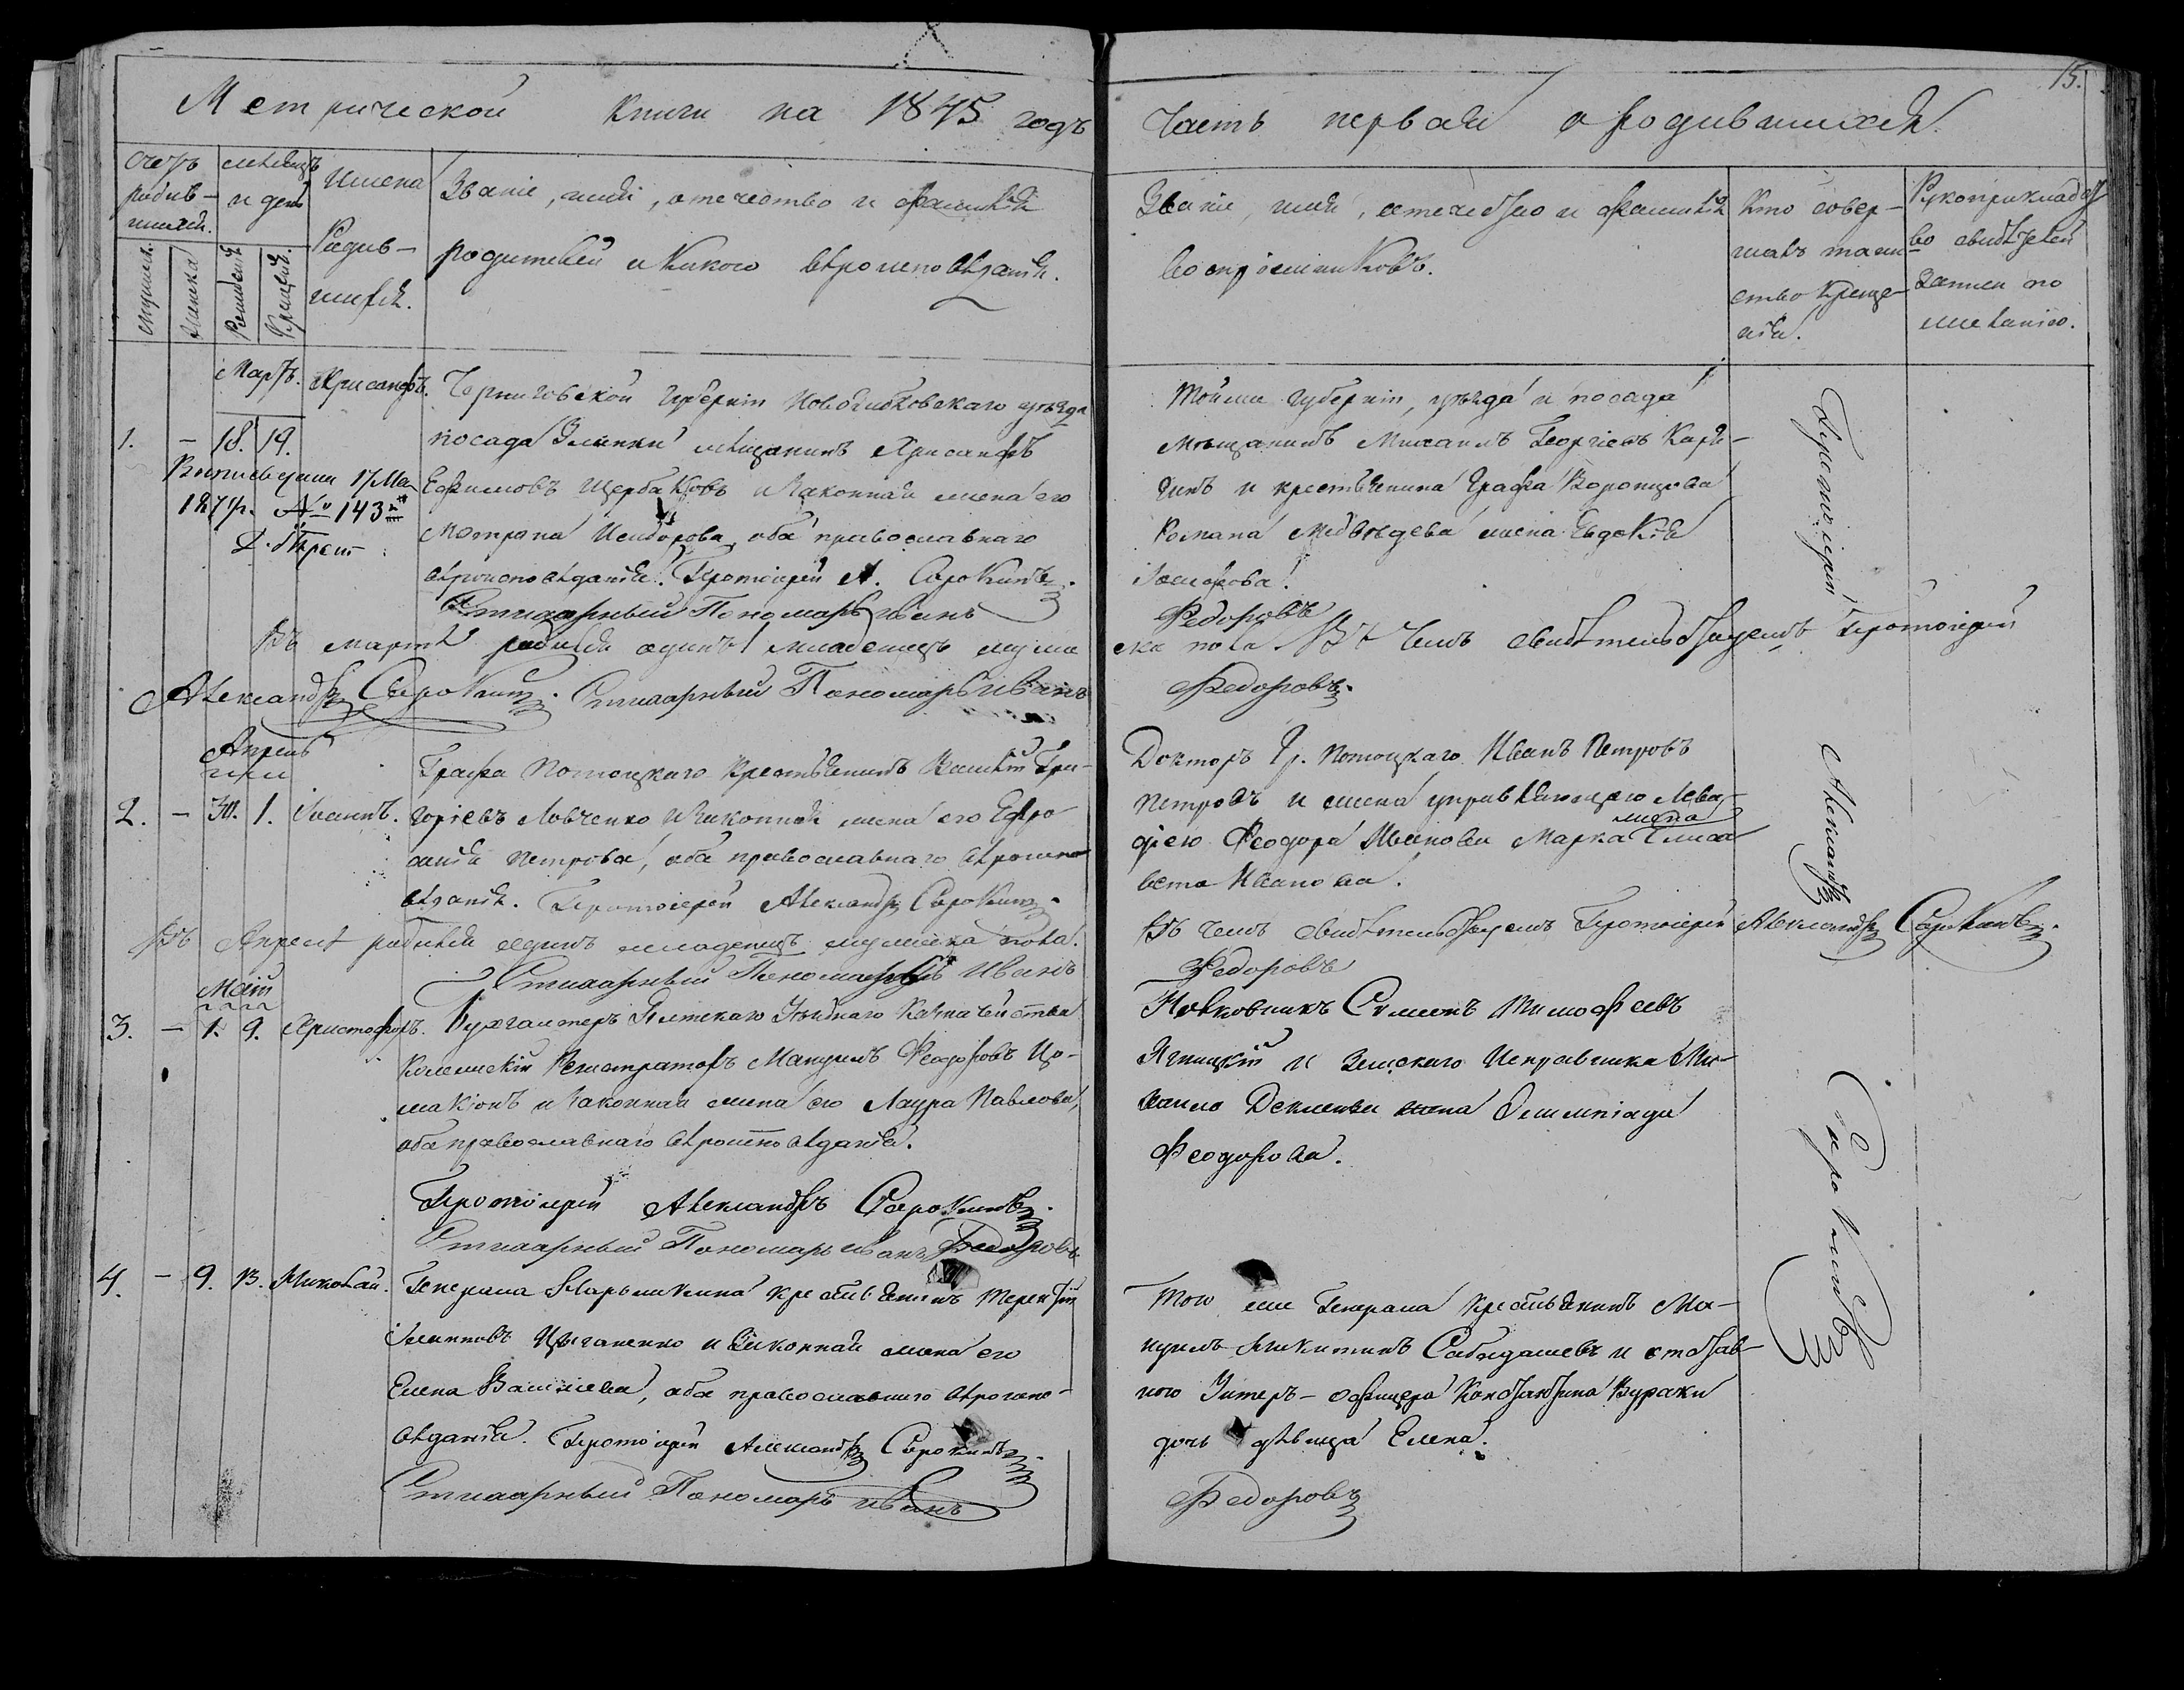 15.
Метрической книги на 1845 годъ
Часть первая о родившихся.
Счетъ родив-шихся.
мѣсяцъ и день
мужеска.
женска
Рожденія
Крещенія.
Имена Родив-шихся.
Званіе, имя, отечество и фамилія
родителей и какого вѣроисповѣданія.
Званіе, имя, отечество и фамилія
воспріемниковъ.
Кто совер-
шалъ таин
ство креще-
нія.
Рукоприкладст
во свидѣтелей
записи по
желанію.
Мартъ. Хрисанфъ. Черниговской Губерніи Новозыбковскаго уѣзда
1. – 18. 19. посада Злынки мѣщанинъ Хрисанфъ
Ефимовъ Щербаковъ и законная жена его
Матрона Исидорова, оба православнаго
вѣроисповѣданія. Протоіерей А. Сорокинъ.
Стихарный Пономарь Иванъ
1874. № 143
Тойже губерніи, уѣзда и посада
мѣщанинъ Михаилъ Георгіевъ Каря-
гинъ и крестьянина Графа Воронцова
Романа Медвѣдева жена Евдокія
Федоровъ
Въ мартѣ родился одинъ младенецъ муже
ска пола. Въ чемъ свидѣтельствуемъ Протоіерей
Александръ Сорокинъ. Стихарный Пономарь Иванъ
Федоровъ.
Апрель
Графа Потоцкаго крестьянинъ Василій Гри-
2. – 30. 1. Іоаннъ. горіевъ Ловченко и законная жена его Ефро
синія Петрова, оба православнаго вѣроиспо
вѣданія. Протоіерей Александръ Сорокинъ.
Докторъ Гр. Потоцкаго Иванъ Петровъ
Петровъ и жена управляющаго Лива-
діею Феодора Иванова Марка жена Елиса
вета Иванова.
Въ Апрелѣ родился одинъ младенецъ мужеска пола.
Въ чемъ свидѣтельствуемъ Протоіерей Александръ Сорокинъ.
Стихарный Пономарь Иванъ
Федоровъ
Май
3. – 1. 9. Христофоръ. Бухгалтеръ Ялтскаго Уѣзднаго Казначейства
Колежскій Регистраторъ Мануилъ Феодоровъ Цо-
макіонъ и законная жена его Лаура Павлова,
оба православнаго вѣроисповѣданія.
Протоіерей Александръ Сорокинъ.
Стихарный Пономарь Иванъ Федоровъ
Полковникъ Симеонъ Тимофеевъ
Ягницкій и Земскаго Исправника Ми-
хаила жена Олимпіада
Феодорова.
4. – 9. 13. Николай. Генерала Нарышкина крестьянинъ Терентій
Цыганенко и законная жена его
Елена Васильева, оба православнаго вѣроиспо-
вѣданія. Протоіерей Александръ Сорокинъ.
Стихарный Пономарь Иванъ
Того же Генерала крестьянинъ Ма-
нуилъ Никитинъ Сабадашевъ и отстав-
ного Унтеръ-офицера Константина Бураки
дочь дѣвица Елена.
Федоровъ
Протоіерей Александръ Сорокинъ